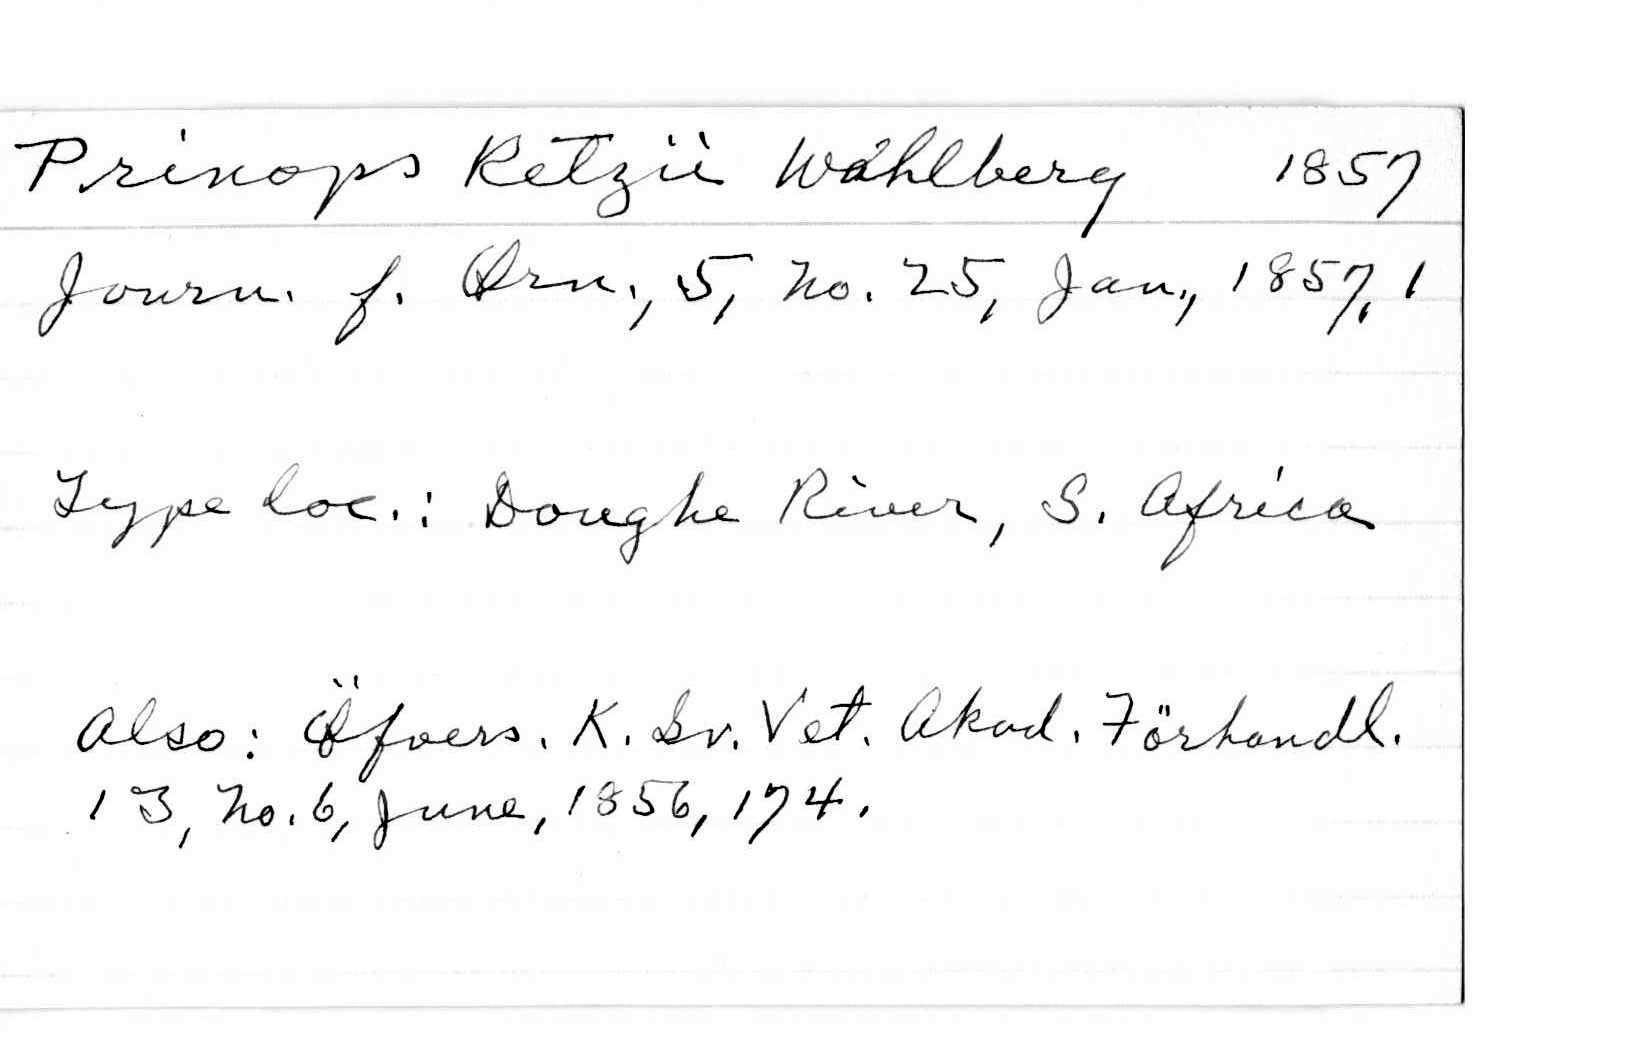 Prinops Retzii Wahlberg 1857
Journ. f. Orn., 5, no. 25, Jan., 1857, 1
Type loc.: Doughe River, S. Africa
Also: Öfvers. K. Sv. Vet. Akad. Förhandl.
13, no. 6, June, 1856, 174.